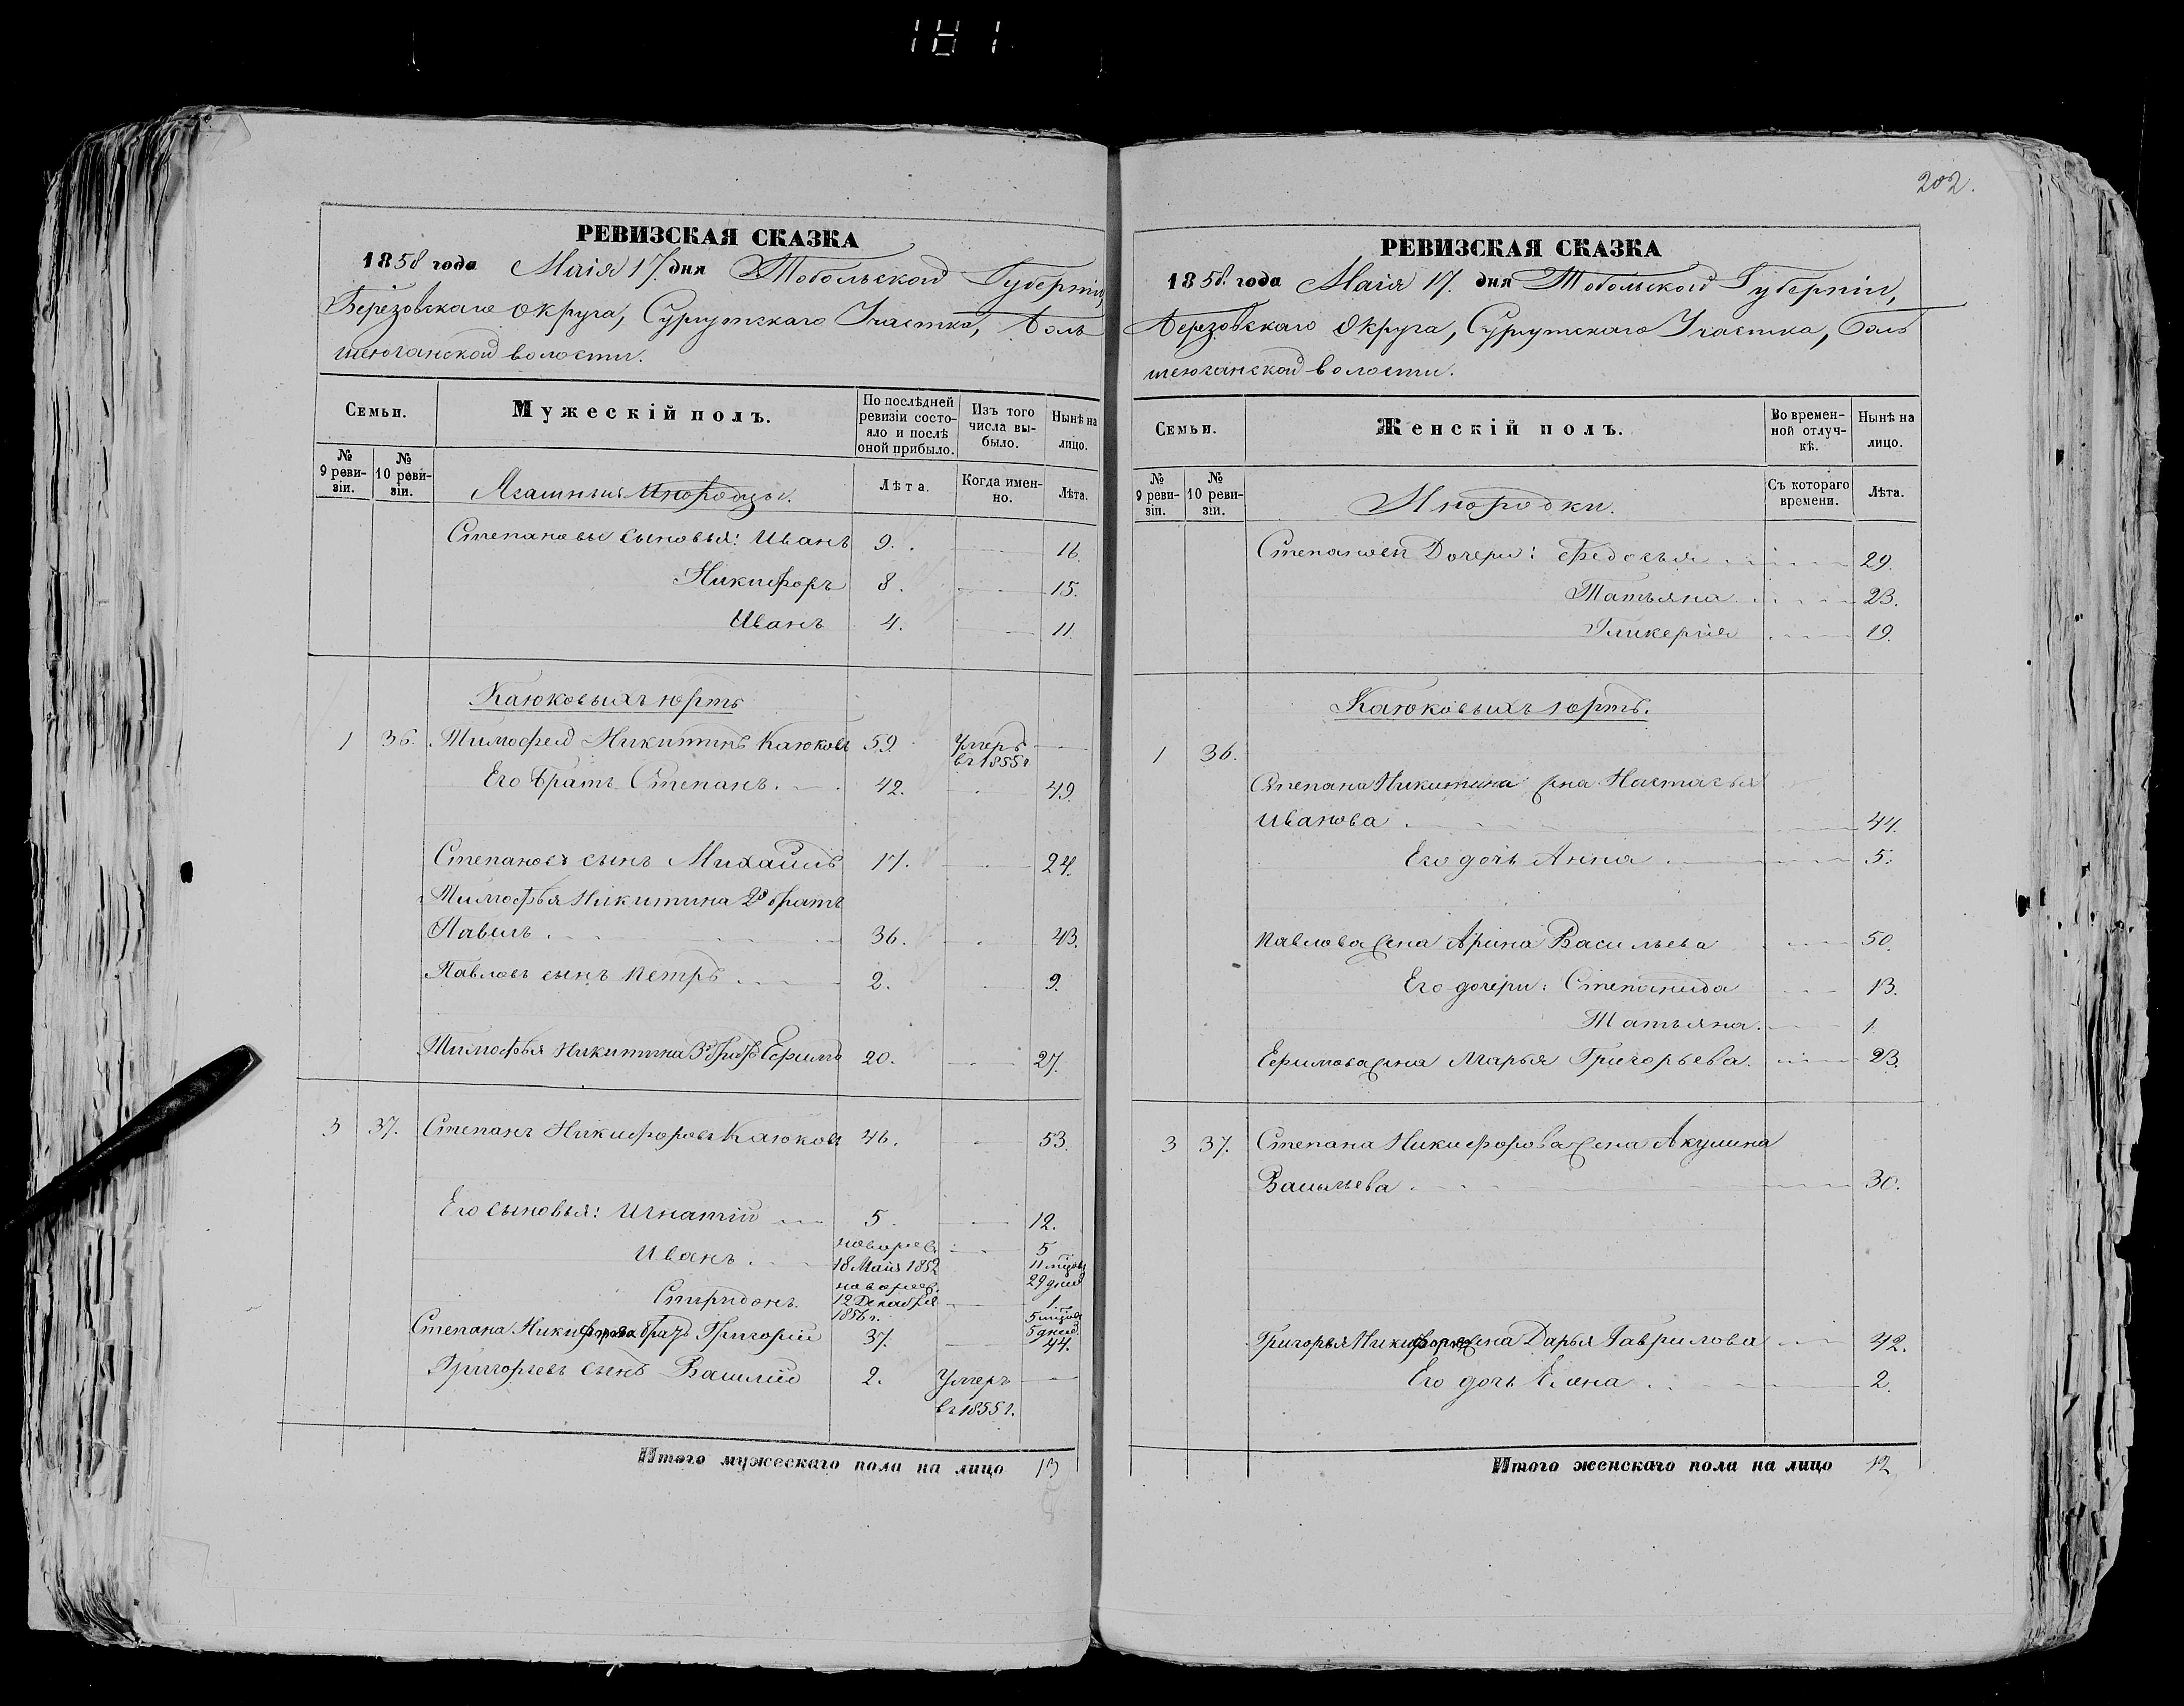 181
РЕВИЗСКАЯ СКАЗКА
1858 года Маія 17. дня Тобольской Губерніи,
Березовскаго округа, Сургутскаго Участка, Боль
шеюганской волости.
Семьи.
Мужескій полъ.
По послѣдней ревизіи состояло и послѣ оной прибыло.
Изъ того числа выбыло.
Нынѣ на лицо.
№ 9 ревизіи.
№ 10 ревизіи.
Ясашныя Инородцы.
Лѣта.
Когда именно.
Лѣта.
Степановы сыновья: Иванъ 9. 16.
Никифоръ 8. 15.
Иванъ 4. 11.
Каюковыхъ юртъ
1 36. Тимофей Никитинъ Каюковъ 59. Умеръ
въ 1855г
Его братъ Степанъ. 42. 49.
Степановъ сынъ Михайлъ 17. 24.
Тимофѣя Никитина 2й братъ
Павелъ 36. 43.
Павловъ сынъ Петръ 2. 9.
Тимофѣя Никитина 3й братъ Ефимъ 20. 27.
3 37. Степанъ Никифоровъ Каюковъ 46. 53.
Его сыновья: Игнатій 5. 12.
Иванъ новорож.
18 Маія 1852 5
11 мѣсяц
29 дней
Спиридонъ. новорож.
12 Декабря
1856 г. 1.
5 мѣсяц
5 дней
Степана Никифорова братъ Григорій 37. 44.
Григорьевъ сынъ Василій 2. Умеръ
въ 1855г.
Итого мужескаго пола на лицо 13
202.
РЕВИЗСКАЯ СКАЗКА
1858. года Маія 17. дня Тобольской Губерніи,
Березовскаго Округа, Сургутскаго Участка, Боль
шеюганской волости.
Семьи.
Женскій полъ.
Во временной отлучкѣ.
Нынѣ на лицо.
№ 9 ревизіи.
№ 10 ревизіи.
Инородки.
Съ котораго времени.
Лѣта.
Степановы Дочери: Федосья 29.
Татьяна 23.
Гликерія 19.
Каюковыхъ юртъ.
1 36.
Степана Никитина жена Настасья
Иванова 44.
Его дочь Анна 5.
Павлова жена Арина Васильева 50.
Его дочери: Степанида 13.
Татьяна. 1.
Ефимова жена Марья Григорьева. 23.
3 37. Степана Никифорова жена Акулина
Васильева 30.
Григорья Никифорова жена Дарья Гаврилова 42.
Его дочь Елена 2.
Итого женскаго пола на лицо 12